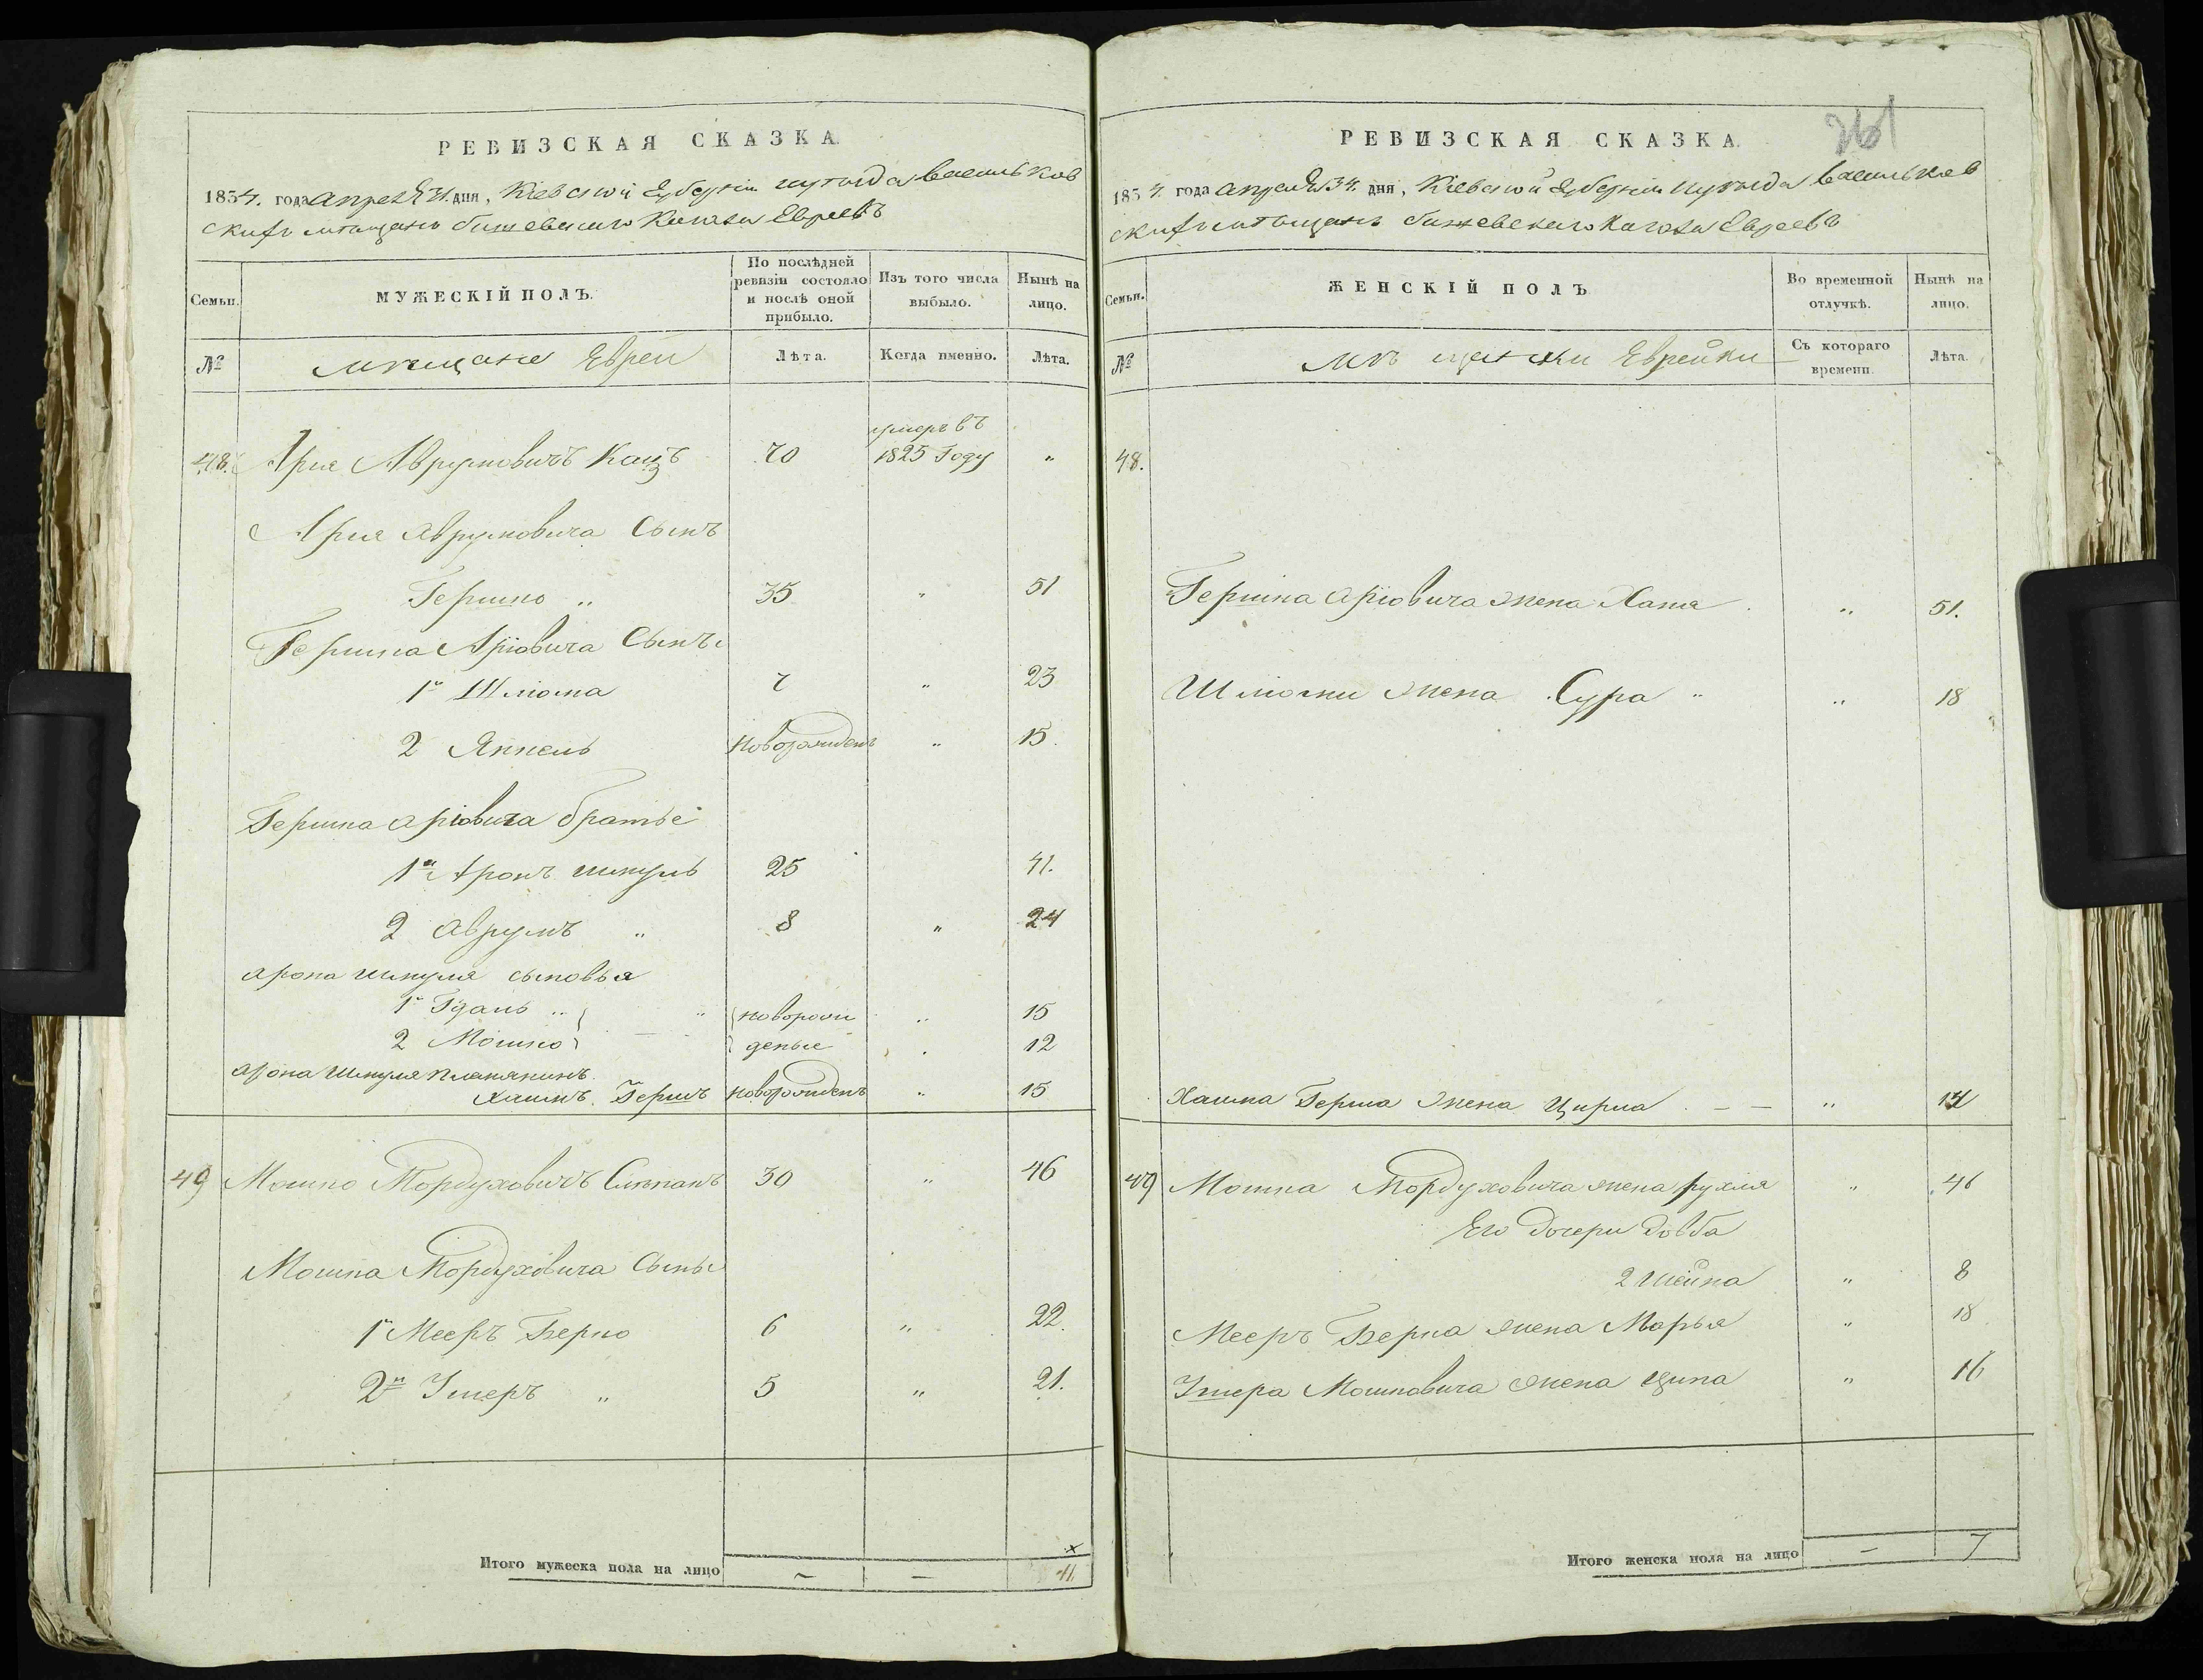 РЕВИЗСКАЯ СКАЗКА.
1834. года Апреля дня, Кіевской Губерніи и уезда Васильков
скихъ мѣщанъ Бышевскаго Кагала Евреевъ
Семьи.
МУЖЕСКІЙ ПОЛЪ.
По послѣдней ревизіи состояло и послѣ оной прибыло.
Изъ того числа выбыло.
Нынѣ на лицо.
№
мещане Евреи
Лѣта.
Когда именно.
Лѣта.
48. Арія Аврумовичъ Кацъ 70 умеръ въ 1825 Году "
Арія Аврумовича Сынъ
Гершко " 35 " 51
Гершка Аріовича Сыны
1й Шліома 7 " 23
2 Янкель новорожденъ " 15.
Гершка Аріовича братье
1й Аронъ Шмуль 25 41.
2 Аврумъ " 8 " 24
Арона Шмуля сыновья
1й " новорож " 15
2 Мошко деные " 12
Арона Шмуля племянникъ
Хаимъ Гершъ новорожденъ " 15
49 Мошко Мордуховичъ 30 " 46
Мошка Мордуховича Сыны
1й Мееръ Берко 6 " 22.
2й Ушеръ " 5 " 21.
Итого мужеска пола на лицо — — 11
РЕВИЗСКАЯ СКАЗКА.
261
1834. года Апреля дня, Кіевской Губерніи и уезда Васильков
скихъ мѣщанъ Бышевскаго Кагала Евреевъ
Семьи.
ЖЕНСКІЙ ПОЛЪ
Во временной отлучкѣ.
Нынѣ на лицо.
№
мѣщанки Еврейки
Съ котораго времени.
Лѣта.
48.
Гершка Аріовича жена Хана " 51.
Шліомы жена Сура " " 18
Хаима Герша жена Цирла — — " 14
49 Мошка Мордуховича жена Рухля " 46
Его дочери Довба
2 Шейна " 8
Мееръ Берка жена Марья " 18
Ушера Мошковича жена Ципа " 16
Итого женска пола на лицо — 7